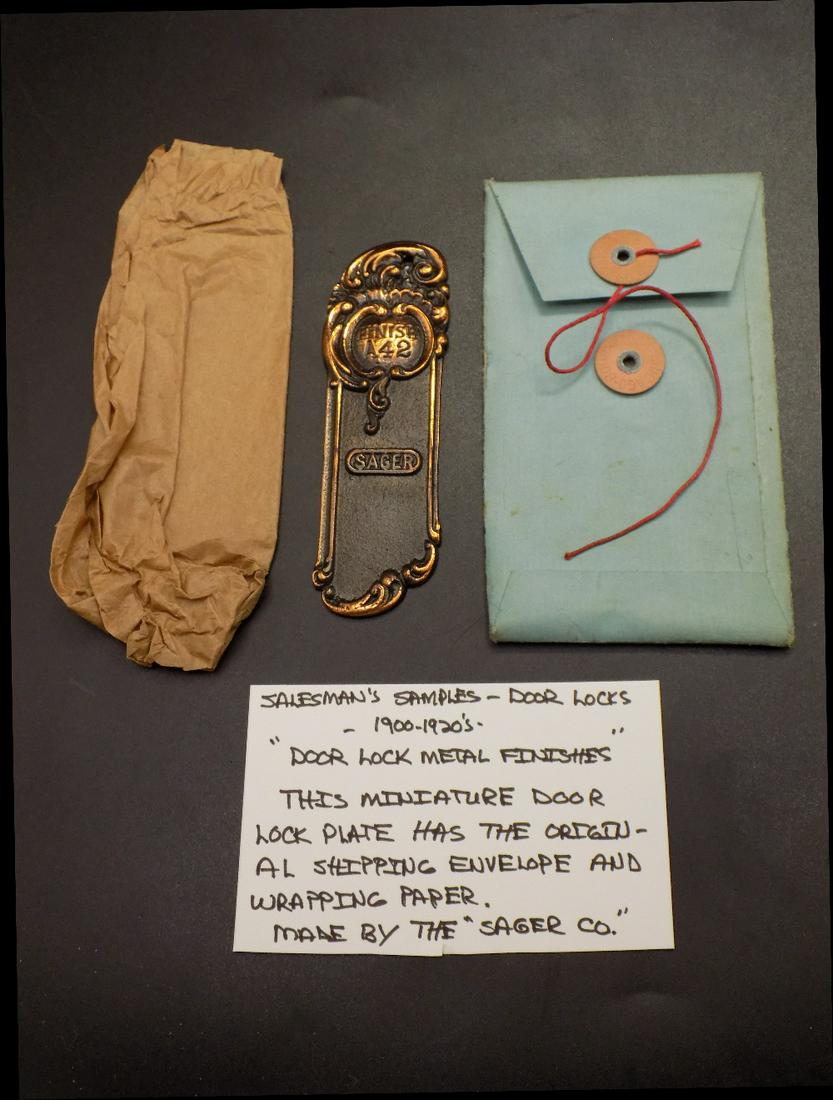 FINISH
A42
SAGER
SALESMAN'S SAMPLES - DOOR LOCKS
- 1900-1920's -
"DOOR LOCK METAL FINISHES"
THIS MINIATURE DOOR
LOCK PLATE HAS THE ORIGIN-
AL SHIPPING ENVELOPE AND
WRAPPING PAPER.
MADE BY THE "SAGER CO."